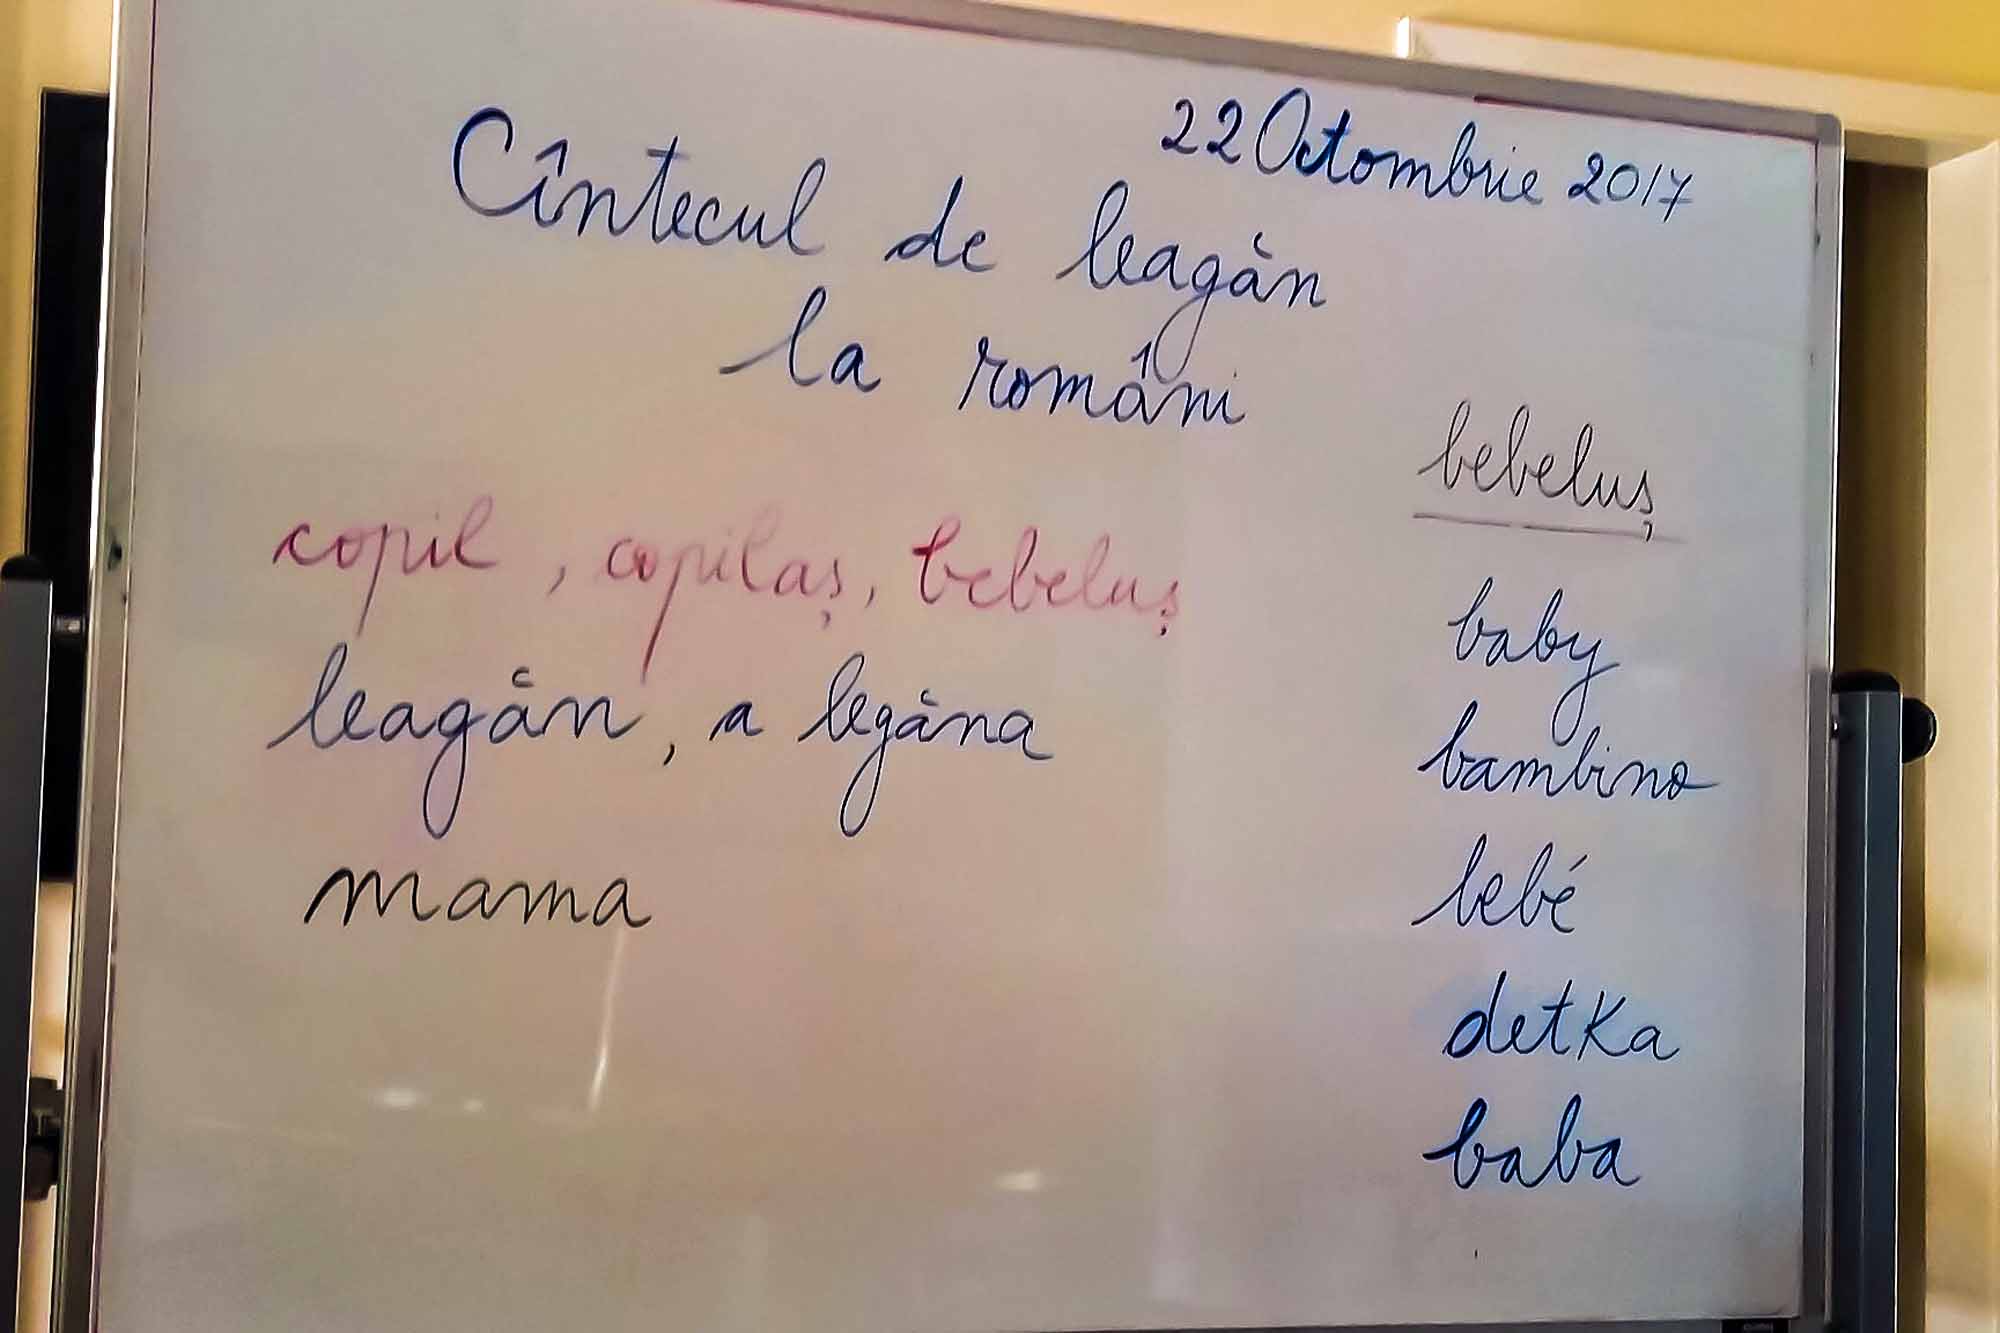 22 Octombrie 2017
Cîntecul de leagăn
la români
copil, copilaș, bebeluș
leagăn, a legăna
mama
bebeluș
baby
bambino
bebé
detka
baba